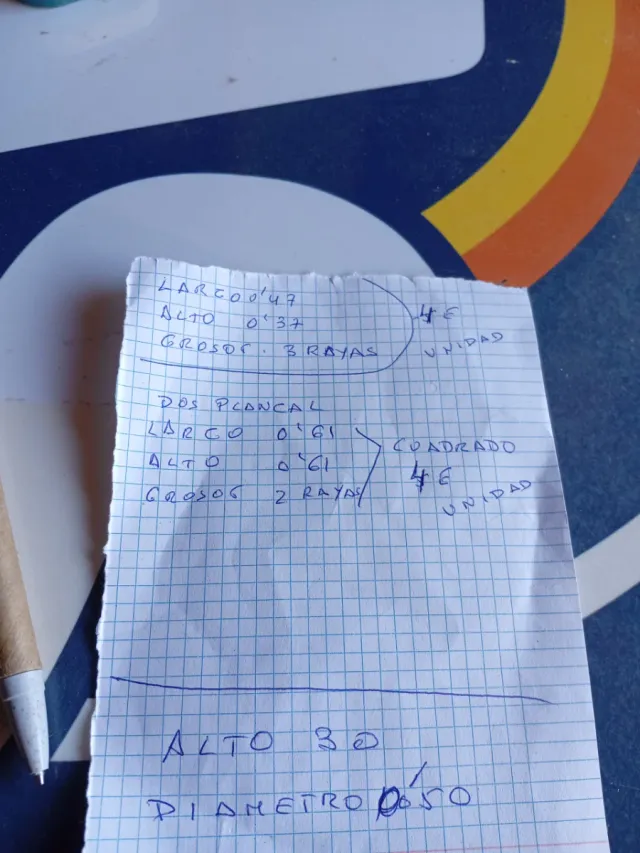 LARGO 0'47
ALTO 0'37
GROSOR. 3 RAYAS
4€
UNIDAD
DOS PLANCAL
LARGO 0'61
ALTO 0'61
GROSOR 2 RAYAS
CUADRADO
4€
UNIDAD
ALTO 30
DIAMETRO 0'50